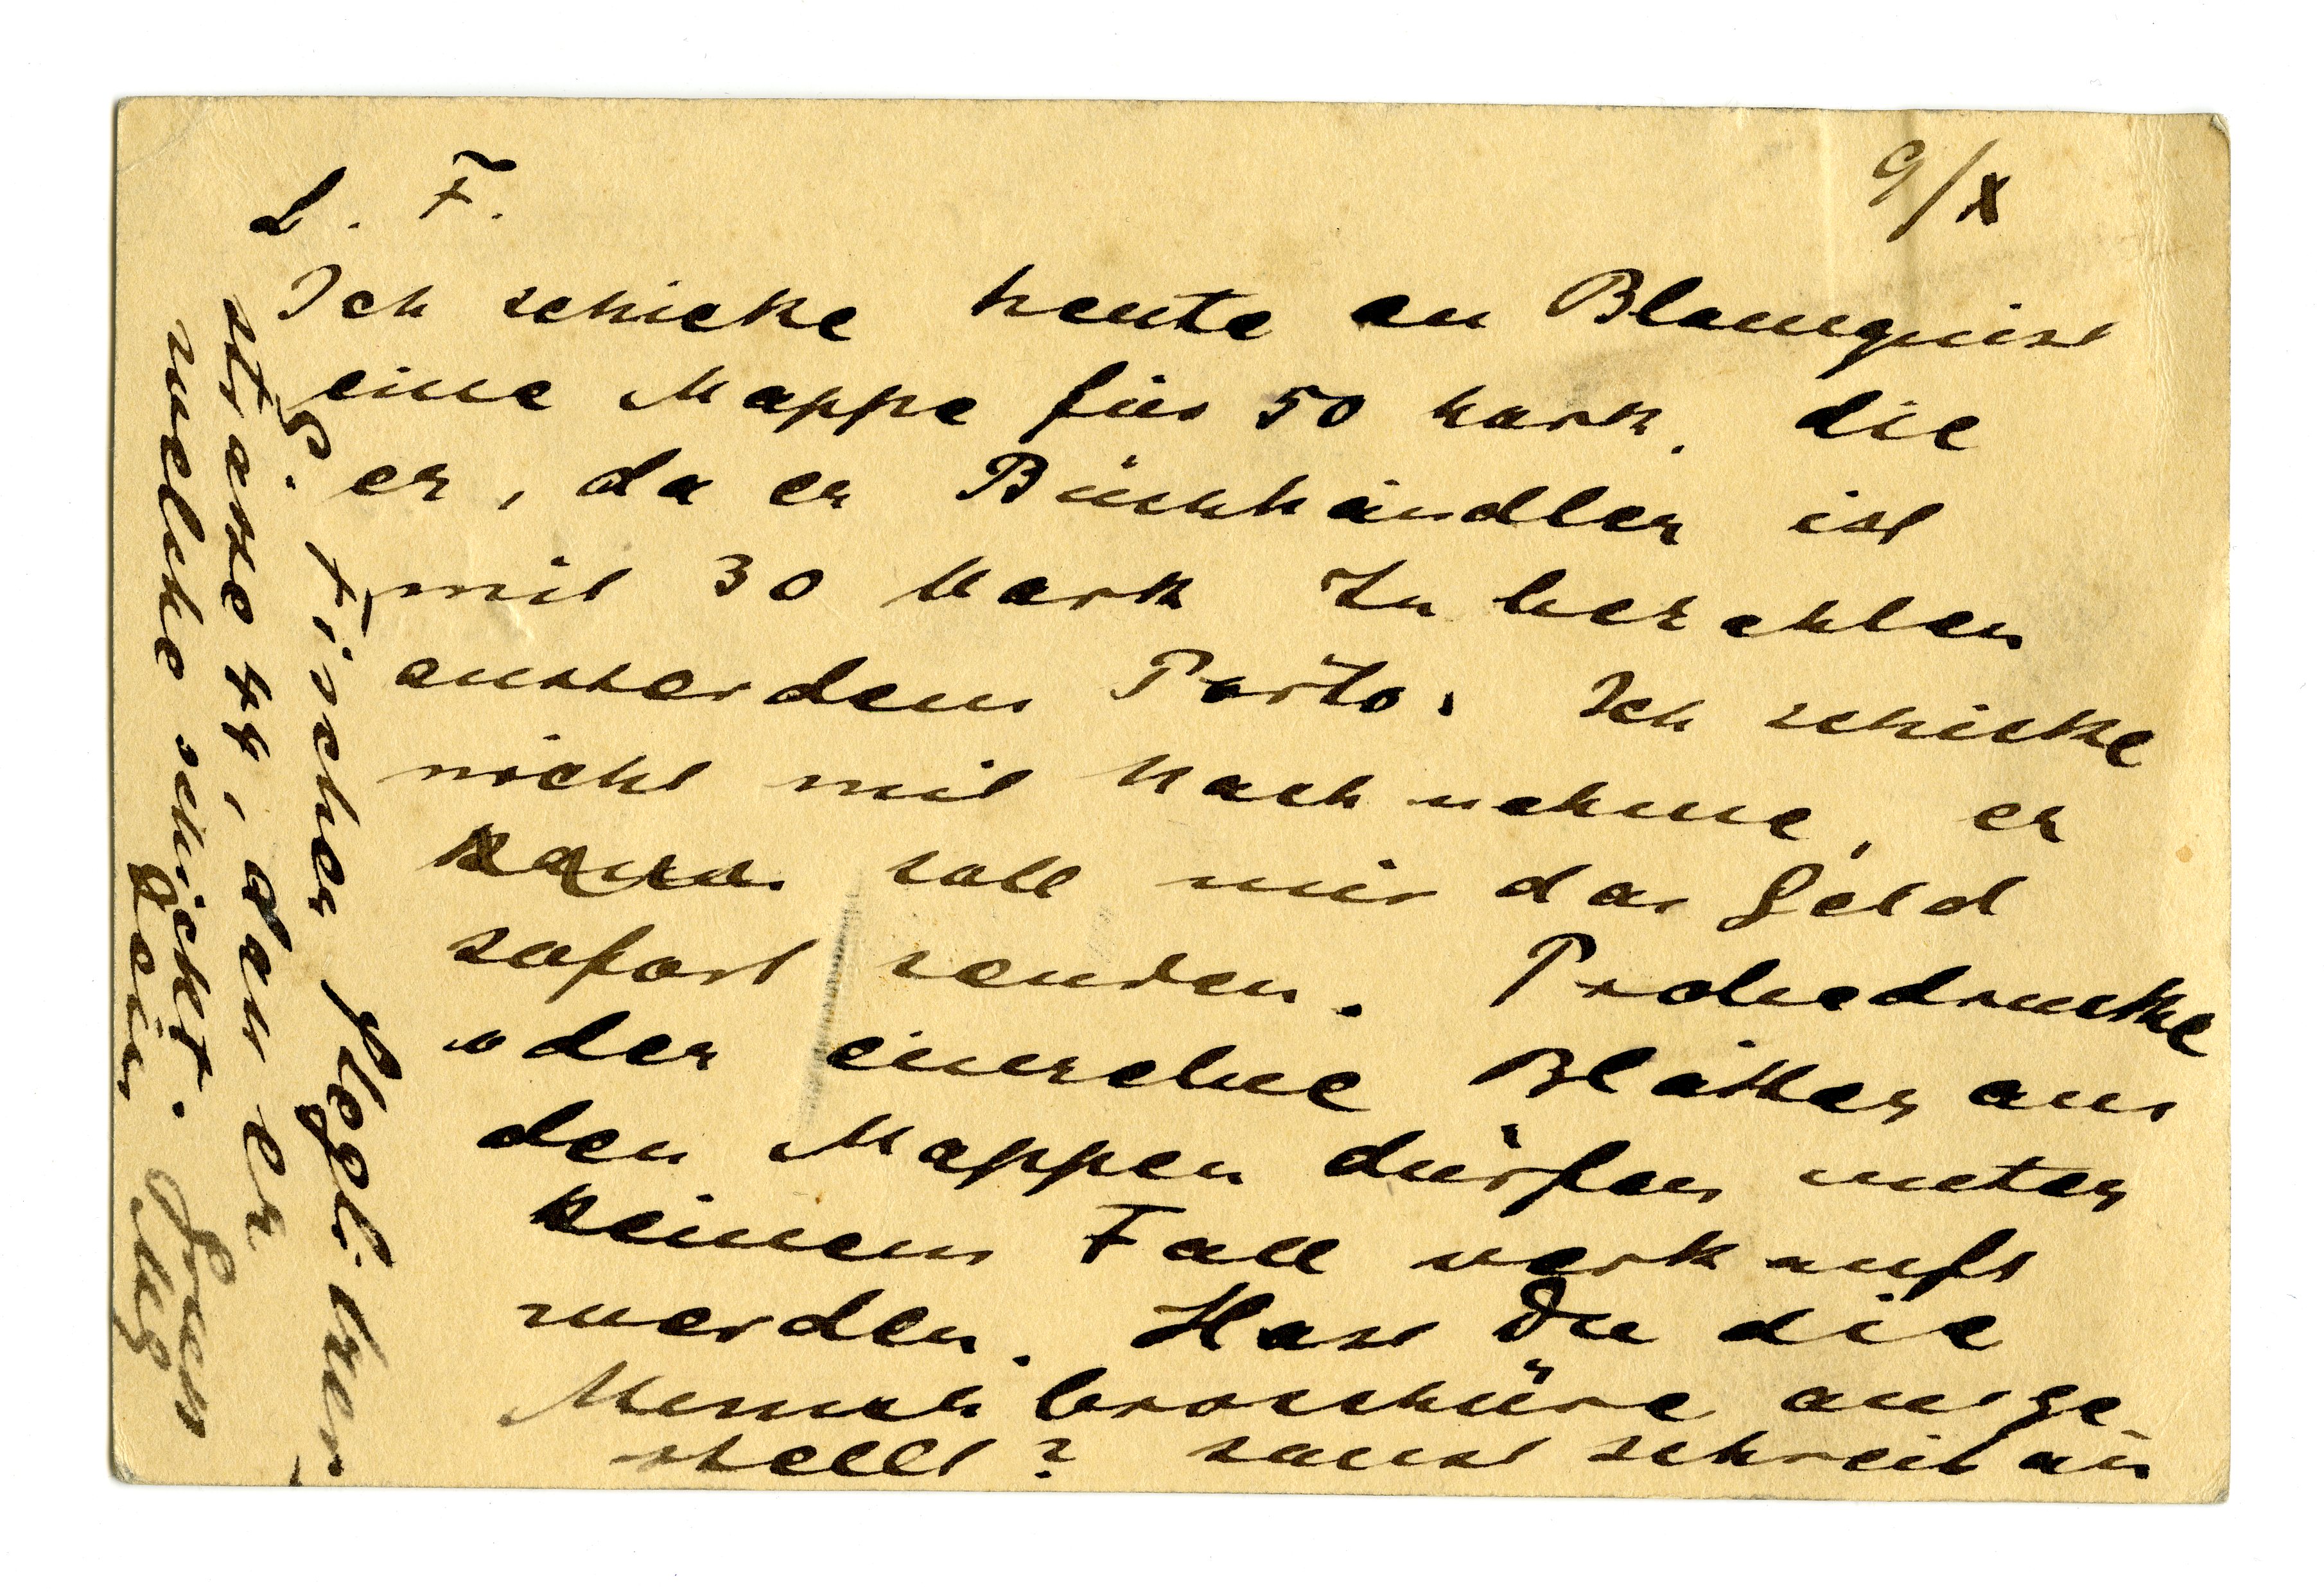 L. F. 9/X
Ich schicke heute an Blomquist
eine Mappe für 50 Mark, die
er, da er Buchhändler ist
mit 30 Mark zu bezahlen
ausserdem Porto. Ich schicke
nicht mit Nachnahme, er
kann soll mir das Geld
sofort senden. Probedrucke
oder einzelne Blätter aus
den Mappen dürfen unter
keinem Fall verkauft
werden. Hast Du die
Munch broschüre ausge
stellt? sonst schreib an
S. Fischer Verl.
strasse 44, dan er
welche schickt.
Dein